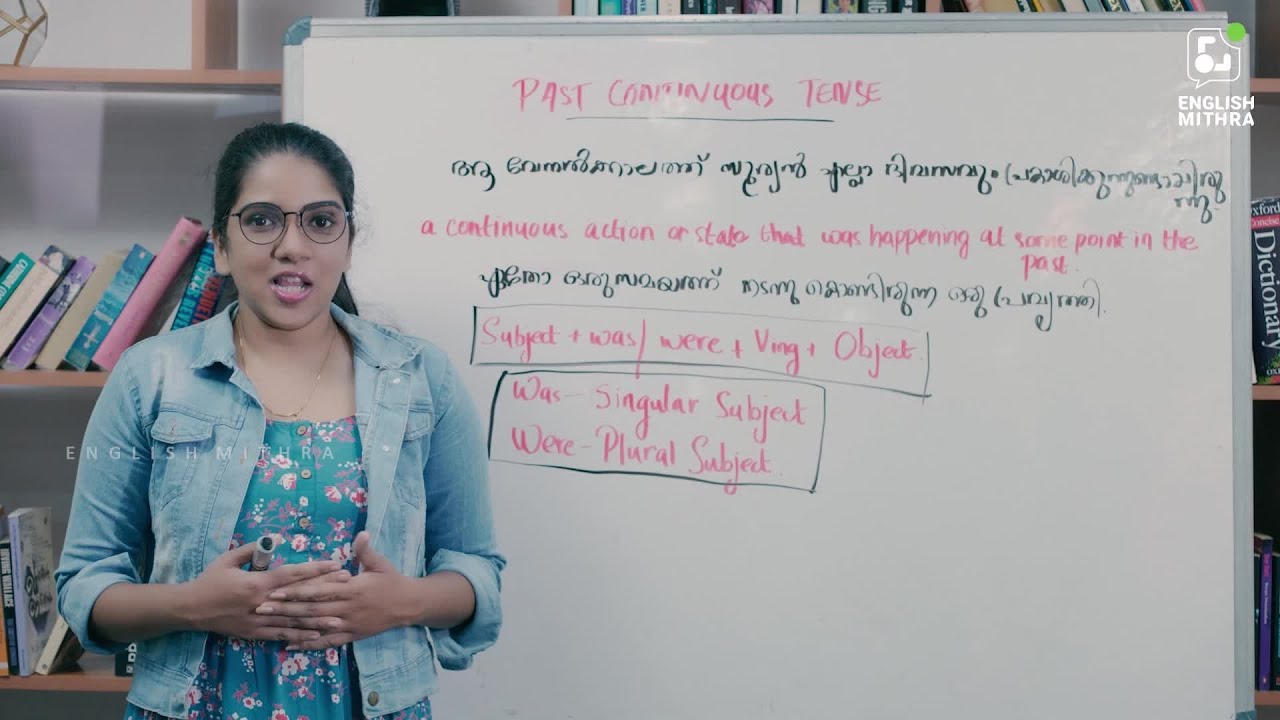 PAST CONTINUOUS TENSE
ആ വേനൽക്കാലത്ത് സൂര്യൻ എല്ലാ ദിവസവും പ്രകാശിക്കുന്നുണ്ടായിരു
ന്നു.
a continuous action or state that was happening at some point in the
past.
ഏതോ ഒരു സമയത്ത് നടന്നു കൊണ്ടിരുന്ന ഒരു പ്രവൃത്തി.
Subject + was/ were + Ving + Object.
Was - Singular Subject
Were - Plural Subject.
ENGLISH
MITHRA
ENGLISH MITHRA
Oxford
Concise
Dictionary